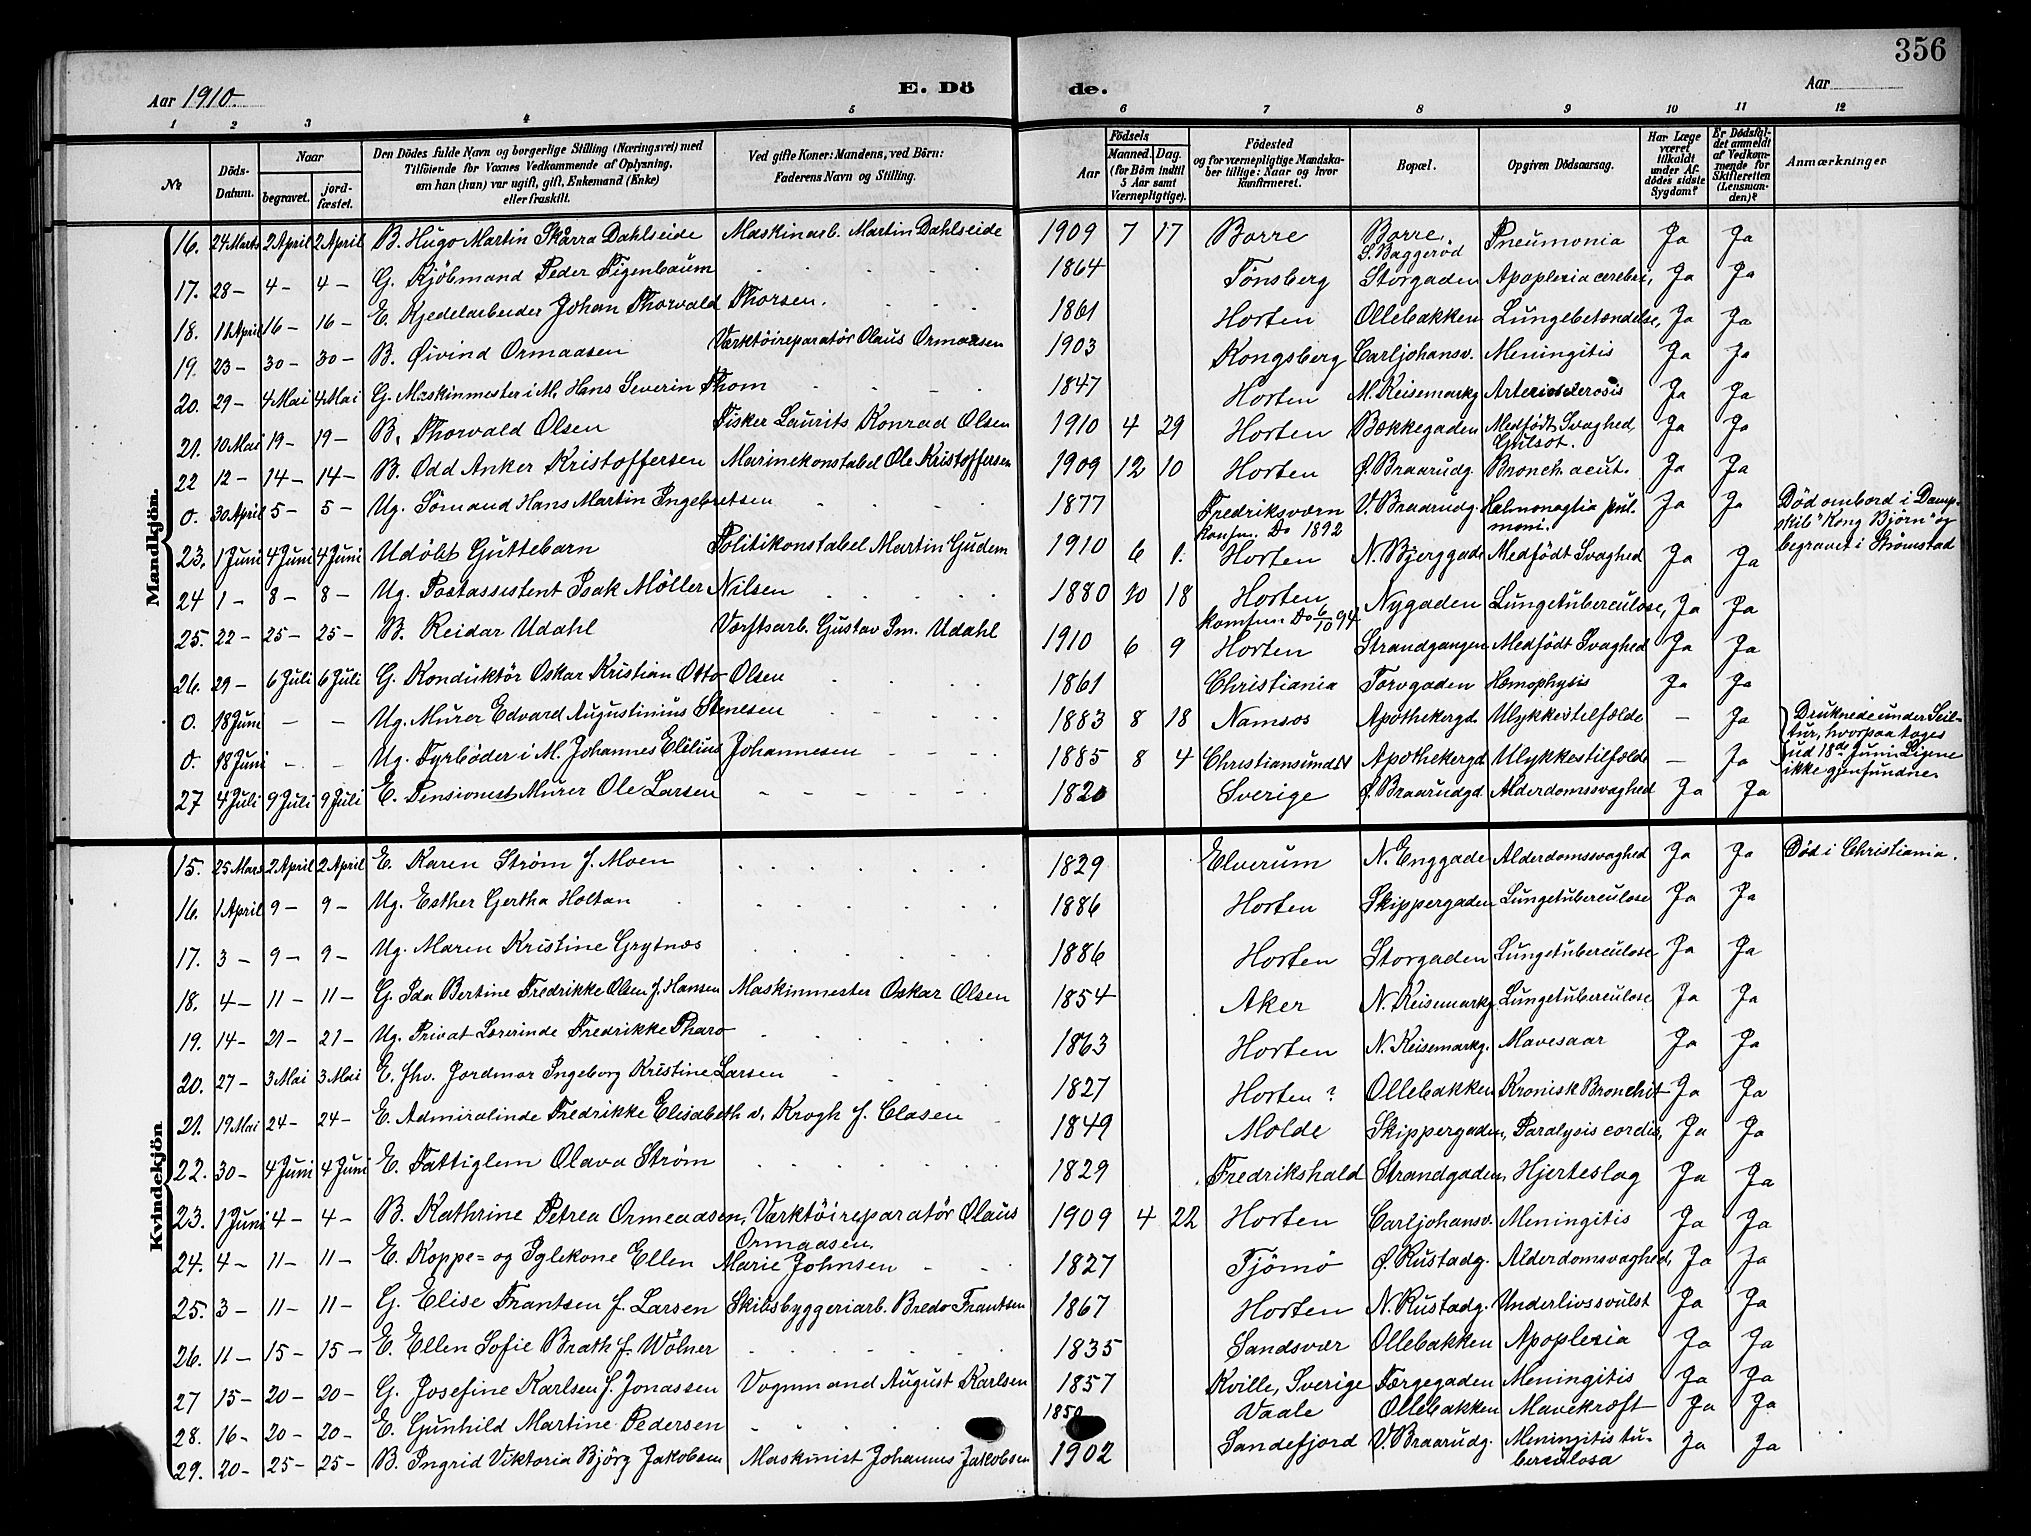 356
Aar 1910. E. Dö de. Aar
1 2 3 4 5 6 7 8 9 10 11 12
№ Döds-Datum. Naar begravet. jordfæstet. Den Dödes fulde Navn og borgerlige Stilling (Næringsvei) med Tilföiende for Voxnes Vedkommende af Oplysning, om han (hun) var ugift, gift, Enkemand (Enke) eller fraskilt. Ved gifte Koner: Mandens, ved Börn: Faderens Navn og Stilling. Födsels Aar Maaned. Dag. (for Börn indtil 5 Aar samt Værnepligtige). Födested og for værnepligtige Mandskaber tillige: Naar og hvor konfirmeret. Bopæl. Opgiven Dödsaarsag. Har Læge været tilkaldt under Afdödes sidste Sygdom? Er Dödsfaldet anmeldt af Vedkommende for Skifteretten (Lensmanden)? Anmærkninger
Mandkjön.
16. 24 Marts 2 April 2 April B. Hugo Martin Skårra Dahlseide Maskinarb. Martin Dahlseide 1909 7 17 Borre Borre, S. Baggeröd Pneumonia Ja Ja
17. 28 – 4 – 4 – G. Kjöbmand Peder Figenbaum 1864 Tönsberg Storgaden Apoplexia cerebri, Ja Ja
18. 11 April 16 – 16 – E. Kjedelarbeider Johan Thorvald Thorsen. 1861 Horten Ollebakken Lungebetændelse, Ja Ja
19. 23 – 30 – 30 – B. Øivind Ormaasen Værktöireparatör Olaus Ormaasen 1903 Kongsberg Carljohansv. Meningitis Ja Ja
20. 29 – 4 Mai 4 Mai G. Maskinmester i M. Hans Severin Thom 1847 Horten N. Keisemarkg Arteriosclerosis Ja Ja
21. 10 Mai 19 – 19 – B. Thorvald Olsen Fisker Laurits Konrad Olsen 1910 4 29 Horten Bækkegaden Medfödt Svaghed, Gulsot. Ja Ja
22 12 – 14 – 14 – B. Odd Anker Kristoffersen Marinekonstabel Ole Kristoffersen 1909 12 10 Horten Ø. Braarudg. Bronch. acut. Ja Ja
0. 30 April 5 – 5 – Ug. Sömand Hans Martin Ingebretsen 1877 Fredriksværn konfm. Do 1892 V. Braarudg. Ja Ja Död ombord i Dampskib "Kong Björn" og begravet i Strömstad
23. 1 Juni 4 Juni 4 Juni Udöbt Guttebarn Politikonstabel Martin Gudem 1910 6 1. Horten N. Bjerggade Medfödt Svaghed Ja Ja
24 1 – 8 – 8 – Ug. Postassistent Isak Möller Nilsen 1880 10 18 Horten konfm. Do 6/10 94 Nygaden Lungetuberculose, Ja Ja
25. 22 – 25 – 25 – B. Reidar Udahl Værftsarb. Gustav Im. Udahl 1910 6 9 Horten Strandgangen Medfödt Svaghed Ja Ja
26. 29 – 6 Juli 6 Juli G. Konduktör Oskar Kristian Otto Olsen 1861 Christiania Torvgaden Hæmophysis Ja Ja
0. 18 Juni – – Ug. Murer Edvard Augustinius Stenesen 1883 8 18 Namsos Apothekergd. Ulykkestilfælde – Ja Druknede under Seiltur, hvorpaa toges
0. 18 Juni – – Ug. Fyrböder i M. Johannes Elelius Johannesen 1885 8 4 Christiansund N Apothekergd Ulykkestilfælde – Ja ud 18de Juni. Ligene ikke gjenfundne.
27 4 Juli 9 Juli 9 Juli E. Pensionist Murer Ole Larsen 1820 Sverige Ø. Braarudgd Alderdomssvaghed Ja Ja
Kvindekjön
15. 25 Mars 2 April 2 April E. Karen Ström f. Moen 1829 Elverum N. Enggade Alderdomssvaghed Ja Ja Död i Christiania.
16. 1 April 9 – 9 – Ug. Esther Gertha Holtan 1886 Horten Skippergaden Lungetuberculose Ja Ja
17. 3 – 9 – 9 – Ug. Maren Kristine Grytnæs 1886 Horten Storgaden Lungetuberculose Ja Ja
18. 4 – 11 – 11 – G. Ida Bertine Fredrikke Olsen f. Hansen Maskinmester Oskar Olsen 1854 Aker N. Keisemarkg Lungetuberculose Ja Ja
19. 14 – 21 – 21 – Ug. Privat Lærerinde Fredrikke Pharo 1863 Horten N. Keisemarkg. Mavesaar Ja Ja
20. 27 – 3 Mai 3 Mai E. fhv. Jordmor Ingeborg Kristine Larsen 1827 Horten ? Ollebakken Kronisk Bronchit Ja Ja
21. 19 Mai 24 – 24 – E. Admiralinde Fredrikke Elisabeth v. Krogh f. Clasen 1849 Molde Skippergaden, Paralysis cordis, Ja Ja
22. 30 – 4 Juni 4 Juni E. Fattiglem Olava Ström 1829 Fredrikshald Strandgaden, Hjerteslag Ja Ja
23. 1 Juni 4 – 4 – B. Kathrine Petrea Ormaadsen, Værktöireparatör Olaus Ormaasen. 1909 4 22 Horten Carljohansv. Meningitis Ja Ja
24. 4 – 11 – 11 – E. Koppe= og Iglekone Ellen Marie Johnsen 1827 Tjömö Ø. Rustadg. Alderdomsvaghed, Ja Ja
25. 3 – 11 – 11 – G. Elise Frantsen f. Larsen Skibsbyggeriarb. Bredo Frantsen 1867 Horten N. Rustadg. Underlivssvulst Ja Ja
26. 11 – 15 – 15 – E. Ellen Sofie Brath f. Wölner 1835 Sandsvær Ollebakken Apoplexia Ja Ja
27 15 – 20 – 20 – G. Josefine Karlsen f. Jonassen Vognmand August Karlsen 1857 Kville, Sverige Færgegaden Meningitis Ja Ja
28. 16 – 20 – 20 – E. Gunhild Martine Pedersen 1850 Vaale Ollebakken Mavekræft Ja Ja
29. 20 – 25 – 25 – B. Ingrid Viktoria Björg Jakobsen Maskinist Johannes Jakobsen 1902 Sandefjord V. Braarudg. Meningitis tuberculosa Ja Ja